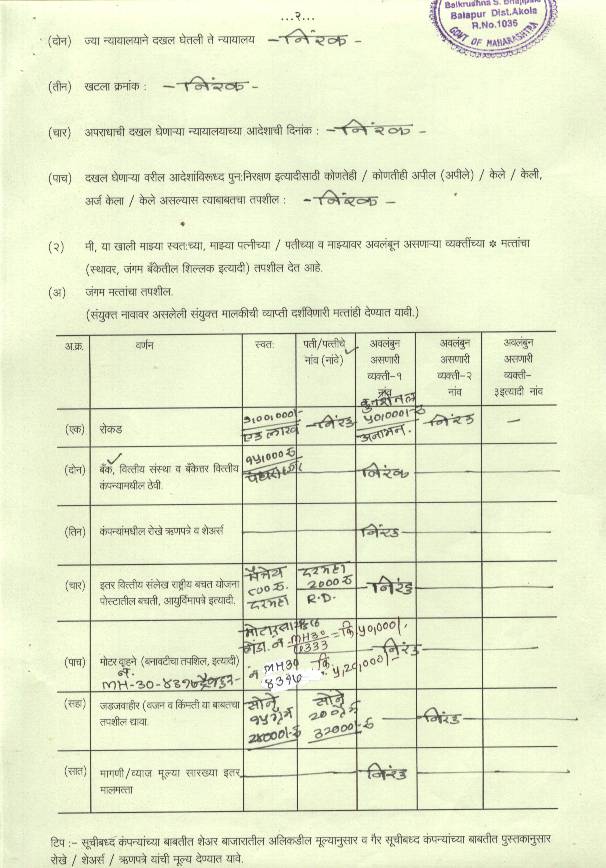 ...२...
Balkrushna S.
Balapur Dist.Akola
R.No.1036
GOVT OF MAHARASHTRA
(दोन) ज्या न्यायालयाने दखल घेतली ते न्यायालय - निरंक -
(तीन) खटला क्रमांक : - निरंक -
(चार) अपराधाची दखल घेणाऱ्या न्यायालयाच्या आदेशाची दिनांक : - निरंक -
(पाच) दखल घेणाऱ्या वरील आदेशांविरूध्द पुन:निरक्षण इत्यादीसाठी कोणतेही / कोणतीही अपील (अपीले) / केले / केली,
अर्ज केला / केले असल्यास त्याबाबतचा तपशील : - निरंक -
(२) मी, या खाली माझ्या स्वत:च्या, माझ्या पत्नीच्या / पतीच्या व माझ्यावर अवलंबून असणाऱ्या व्यक्तींच्या * मत्तांचा
(स्थावर, जंगम बँकेतील शिल्लक इत्यादी) तपशील देत आहे.
(अ) जंगम मत्तांचा तपशील.
(संयुक्त नावावर असलेली संयुक्त मालकीची व्याप्ती दर्शविणारी मत्तांही देण्यात यावी.)
अ.क्र. वर्णन स्वत: पती/पत्नीचे नांव (नांवे) अवलंबुन असणारी व्यक्ती-१ नांव अवलंबुन असणारी व्यक्ती-२ नांव अवलंबुन असणारी व्यक्ती-३इत्यादी नांव
(एक) रोकड १,००,०००/- एक लाख - निरंक ५०,०००/-रु - निरंक -
(दोन) बँक, वित्तीय संस्था व बँकेत्तर वित्तीय कंपन्यामधील ठेवी. १५,०००रु निरंक
(तिन) कंपन्यांमधील रोखे ऋणपत्रे व शेअर्स निरंक
(चार) इतर वित्तीय संलेख राष्ट्रीय बचत योजना पोस्टातील बचती, आयुर्विमापत्रे इत्यादी. ८०० रु. दरमहा दरमहा 2000 रु R.D. निरंक
(पाच) मोटार वाहने (बनावटीचा तपशिल, इत्यादी) नं. MH-30-8396 MH30 कि. ५०,०००/. नं MH30 8396 कि. ५,२०,०००/- निरंक
(सहा) जडजवाहीर (वजन व किंमती या बाबतचा तपशील द्यावा. सोने १५ ग्रॅम सोने 20 ग्रॅम 32000/-रु - निरंक
(सात) मागणी/व्याज मूल्या सारख्या इतर मालमत्ता निरंक
टिप :- सूचीबध्द कंपन्यांच्या बाबतीत शेअर बाजारातील अलिकडील मूल्यानुसार व गैर सूचीबध्द कंपन्यांच्या बाबतीत पुस्तकानुसार
रोखे / शेअर्स / ऋणपत्रे यांची मूल्य देण्यात यावे.